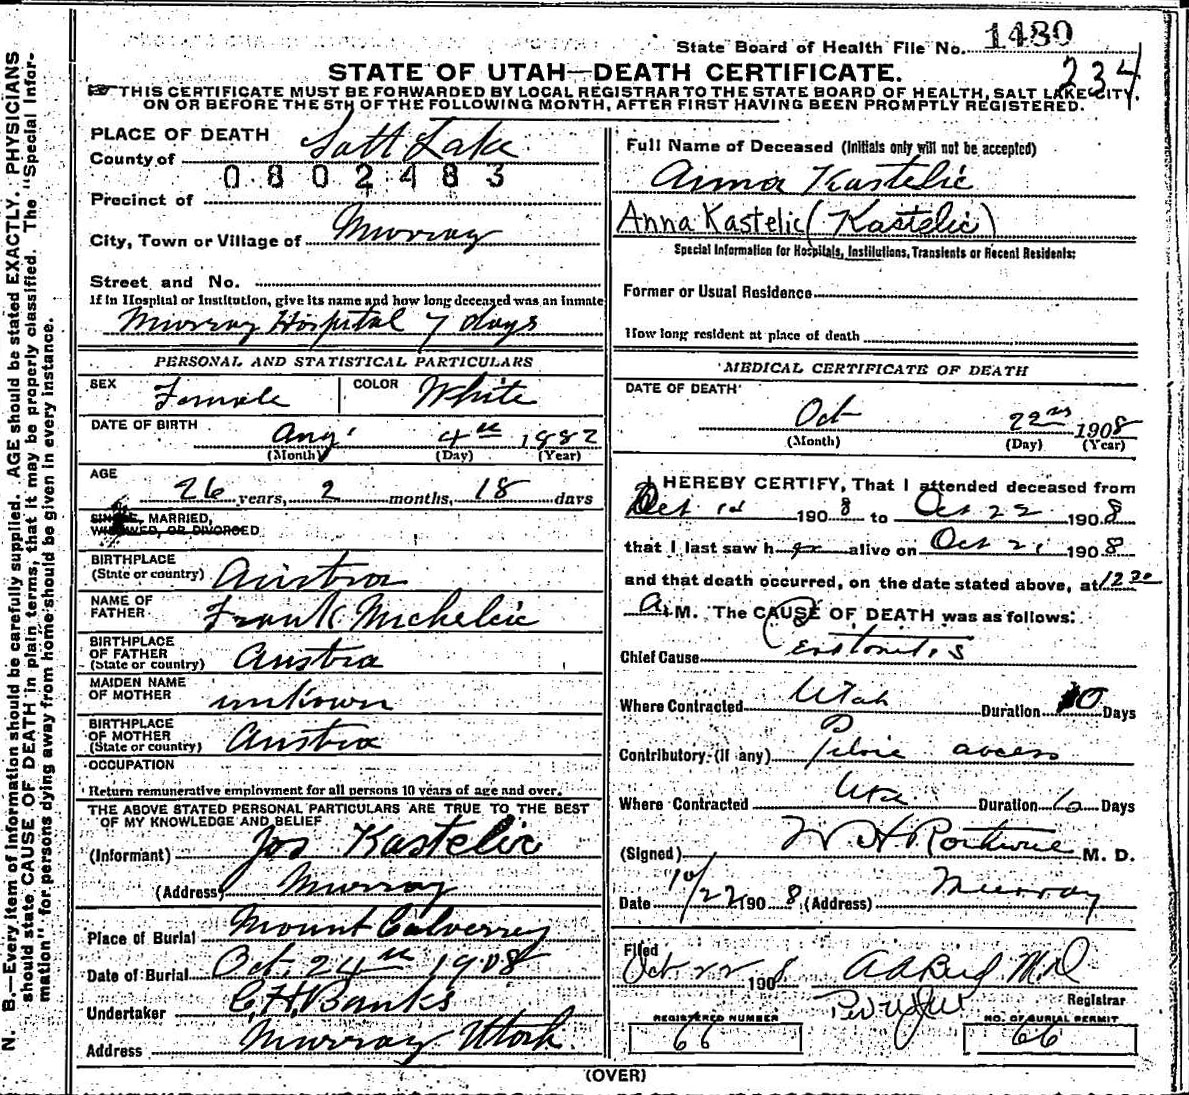 State Board of Health File No. 1480
234
STATE OF UTAH—DEATH CERTIFICATE.
THIS CERTIFICATE MUST BE FORWARDED BY LOCAL REGISTRAR TO THE STATE BOARD OF HEALTH, SALT LAKE CITY,
ON OR BEFORE THE 5TH OF THE FOLLOWING MONTH, AFTER FIRST HAVING BEEN PROMPTLY REGISTERED.
N. B.—Every item of information should be carefully supplied. AGE should be stated EXACTLY. PHYSICIANS
should state CAUSE OF DEATH in plain terms, that it may be properly classified. The "Special Infor-
mation" for persons dying away from home should be given in every instance.
PLACE OF DEATH
County of Salt Lake
0802483
Precinct of
City, Town or Village of Murray
Street and No.
If in Hospital or Institution, give its name and how long deceased was an inmate
Murray Hospital 7 days
PERSONAL AND STATISTICAL PARTICULARS
SEX Female COLOR White
DATE OF BIRTH Aug 4th 1882
(Month) (Day) (Year)
AGE
26 years, 2 months, 18 days
SINGLE, MARRIED,
WIDOWED, OR DIVORCED
BIRTHPLACE
(State or country) Austria
NAME OF
FATHER Frank Michelcic
BIRTHPLACE
OF FATHER
(State or country) Austria
MAIDEN NAME
OF MOTHER unkown
BIRTHPLACE
OF MOTHER
(State or country) Austria
OCCUPATION
Return remunerative employment for all persons 10 years of age and over.
THE ABOVE STATED PERSONAL PARTICULARS ARE TRUE TO THE BEST
OF MY KNOWLEDGE AND BELIEF
(Informant) Jos Kastelic
(Address) Murray
Place of Burial Mount Calverrey
Date of Burial Oct. 24th 1908
Undertaker C.H. Banks
Address Murray Utah.
Full Name of Deceased (Initials only will not be accepted)
Anna Kastelic
Anna Kastelic (Kastelic)
Special Information for Hospitals, Institutions, Transients or Recent Residents:
Former or Usual Residence
How long resident at place of death
MEDICAL CERTIFICATE OF DEATH
DATE OF DEATH
Oct 22nd 1908
(Month) (Day) (Year)
I HEREBY CERTIFY, That I attended deceased from
Oct 1908 to Oct 22 1908
that I last saw her alive on Oct 21 1908
and that death occurred, on the date stated above, at 12 30
A. M. The CAUSE OF DEATH was as follows:
Chief Cause Peritonitis
Where Contracted Utah Duration 10 Days
Contributory (if any) Pelvic abcess
Where Contracted Duration 10 Days
(Signed) W H Rothwell M. D.
Date 10/22 1908 (Address) Murray
Filed
Oct 22 1908 M.D
Registrar
REGISTERED NUMBER NO. OF BURIAL PERMIT
66 66
(OVER)